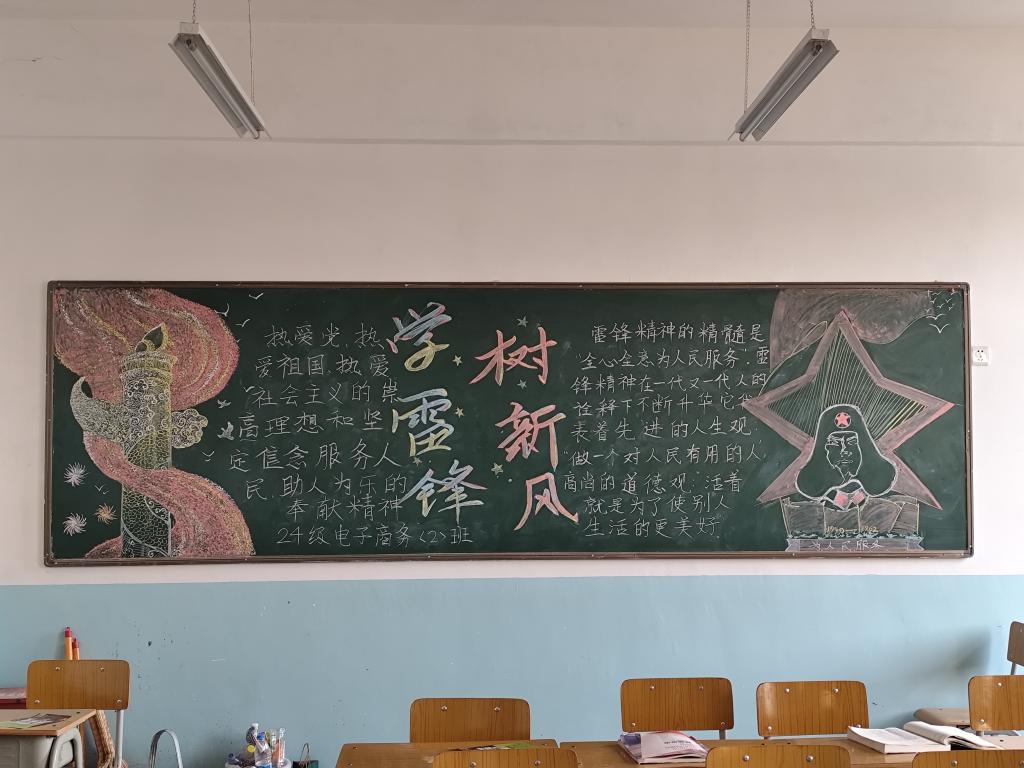 热爱党,热
爱祖国,热爱
社会主义的崇
高理想和坚
定信念服务人
民,助人为乐的
奉献精神
24级电子商务(2)班
学雷锋
树新风
雷锋精神的精髓是
“全心全意为人民服务”雷
锋精神在一代又一代人的
诠释下不断升华它代
表着先进的人生观
“做一个对人民有用的人”
高尚的道德观:活着
就是为了使别人
生活的更美好
1940 1962
为人民服务